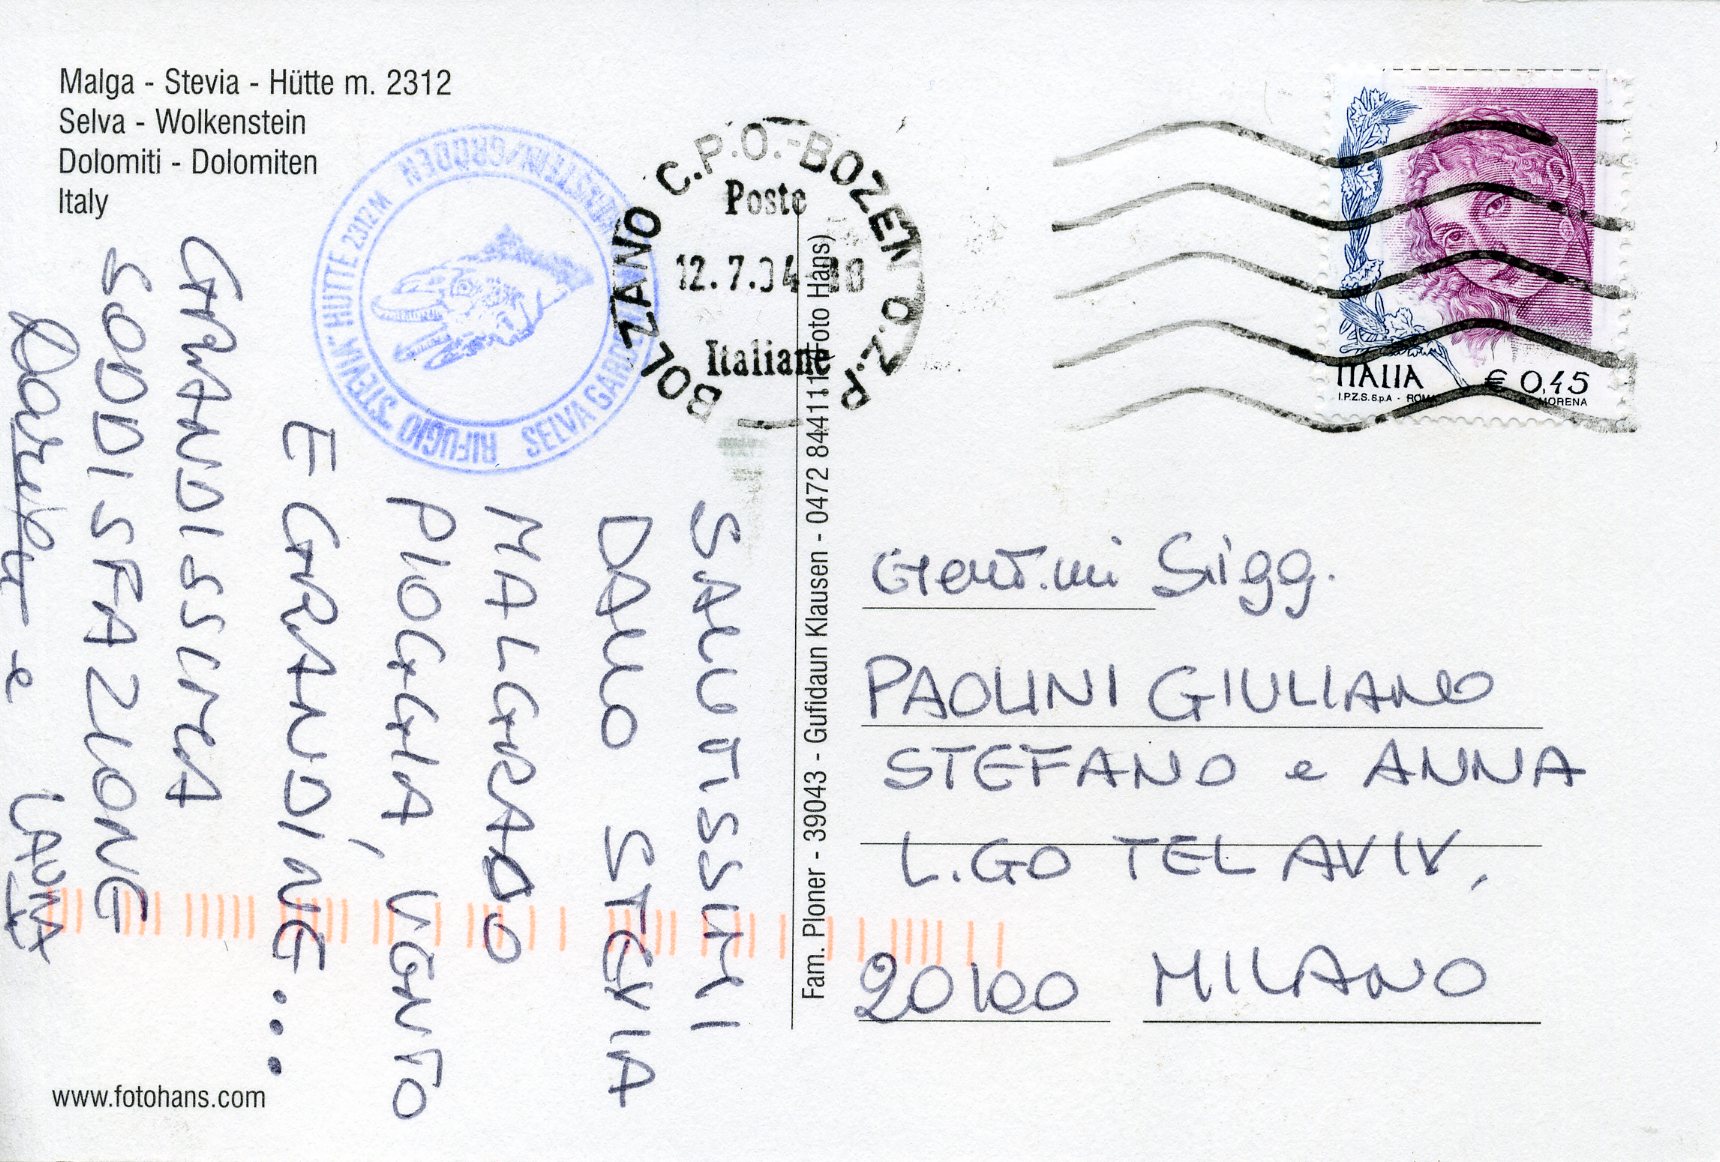 Malga - Stevia - Hütte m. 2312
Selva - Wolkenstein
Dolomiti - Dolomiten
Italy
RIFUGIO "STEVIA" HÜTTE 2312 M
SELVA GARDENA
WOLKENSTEIN/GRÖDEN
BOLZANO C.P.O.-BOZEN O.Z.P.
Poste
12.7.04
Italiane
ITALIA
€ 0,45
I.P.Z.S. S.p.A. - ROMA
MORENA
SALUTISSIMI
DALLO STEVIA
MALGRADO
PIOGGIA, VENTO
E GRANDINE...
GRANDISSIMA
SODDISFAZIONE
e LAURA
Fam. Ploner - 39043 - Gufidaun Klausen - 0472 844111 (Foto Hans)
Gent.mi Sigg.
PAOLINI GIULIANO
STEFANO e ANNA
L.GO TEL AVIV,
20100 MILANO
www.fotohans.com